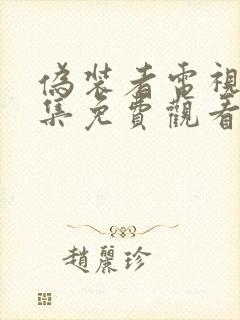 偽裝者電視
集免費觀看
趙麗珍